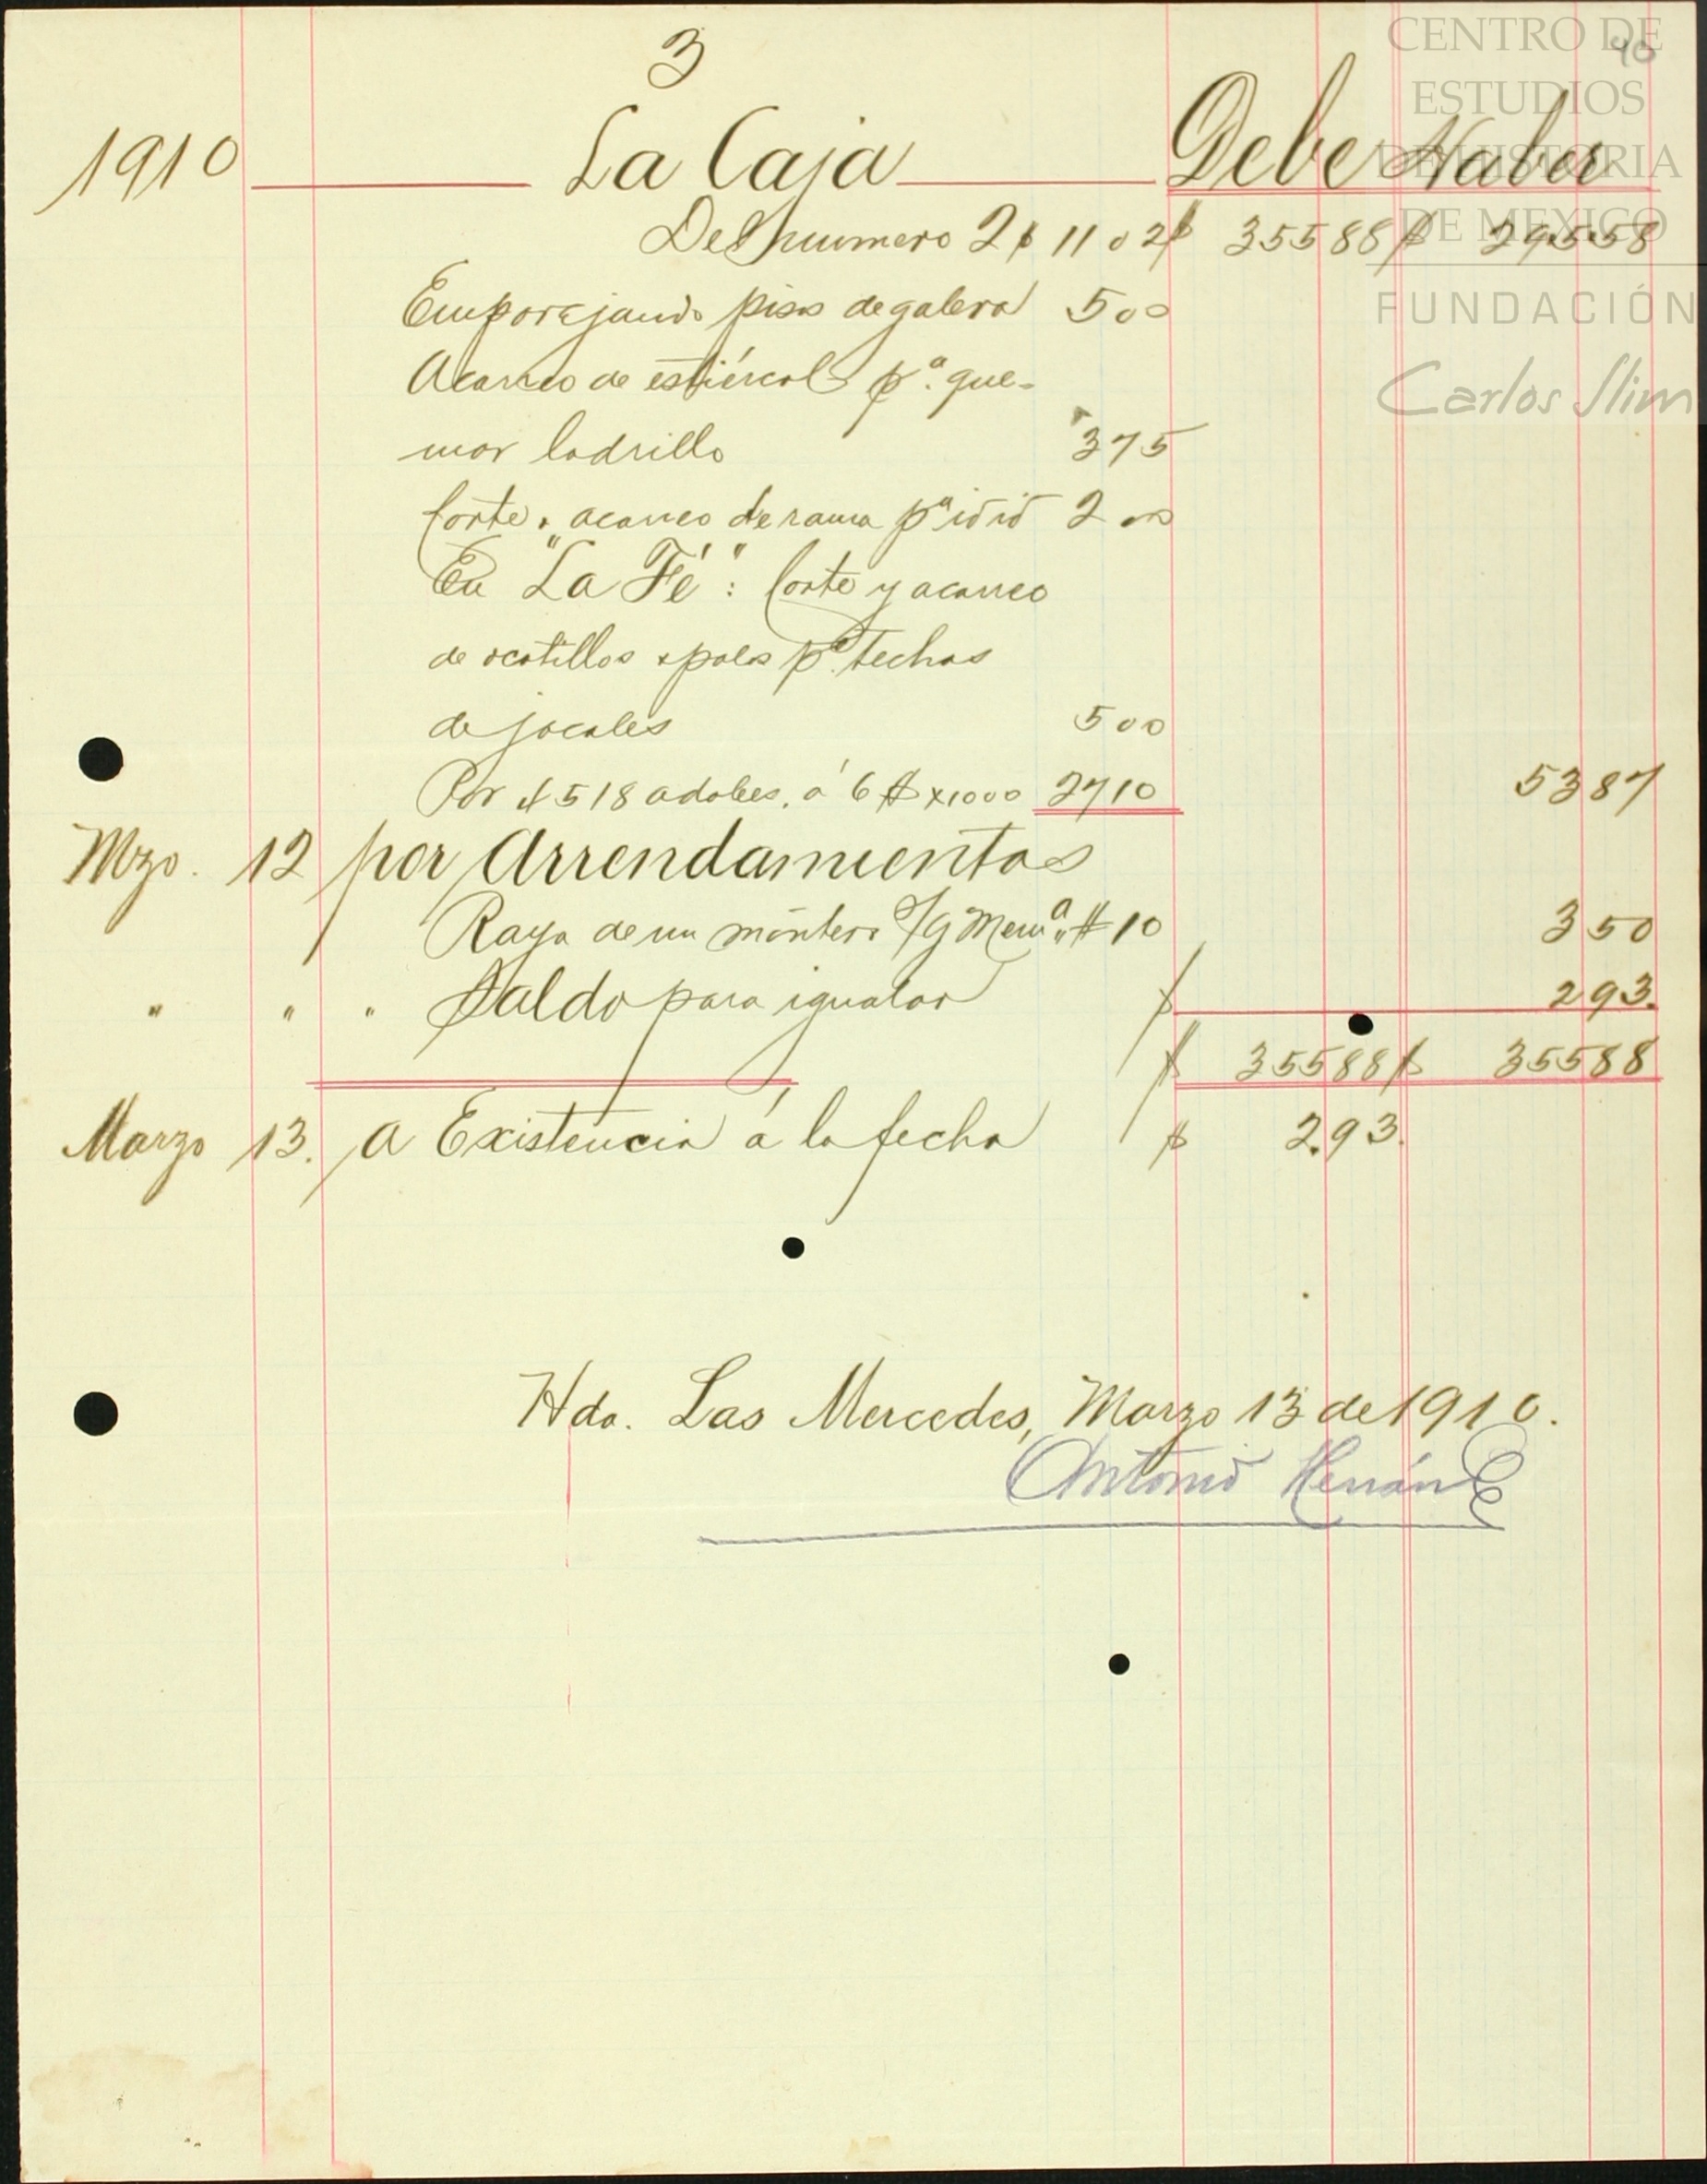 3
40
1910 La Caja Debe Haber
Del numero 2 $ 11 02 $ 355 88 $ 295 58
Emparejando piso de galera 5 00
Acarreo de estiércol pª. que-
mar ladrillo 3 75
Corte y acarreo de rama pª id id 2 00
En "La Fé": Corte y acarreo
de ocotillos y palos pª. techos
de jacales 5 00
Por 4518 adobes, á 6 $ x 1000 27 10 53 87
Mzo. 12 por Arrendamientos
Raya de un montero #10 3 50
" " " Saldo para igualar $ 2 93.
$ 355 88 $ 355 88
Marzo 13. a Existencia á la fecha $ 2.93.
Hda. Las Mercedes, Marzo 13 de 1910.
Antonio
CENTRO DE
ESTUDIOS
DE HISTORIA
DE MEXICO
FUNDACIÓN
Carlos Slim